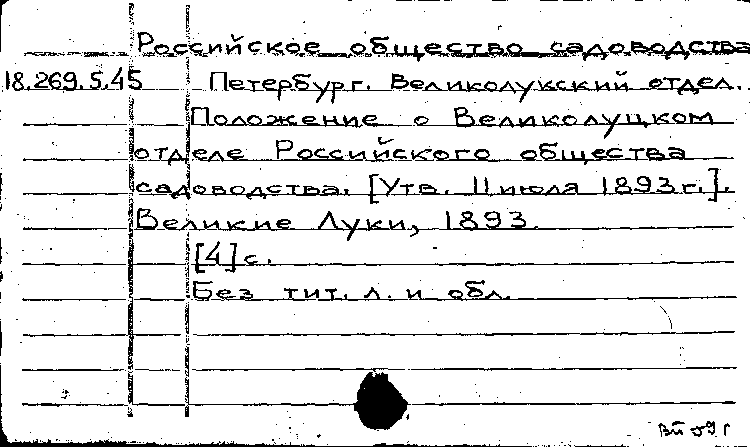 Российское общество садоводства
18.269.5.45 Петербург. Великолукский отдел.
Положение о Великолуцком
отделе Российского общества
садоводства. [Утв. 11 июля 1893 г.].
Великие Луки, 1893.
[4] с.
Без тит. л. и обл.